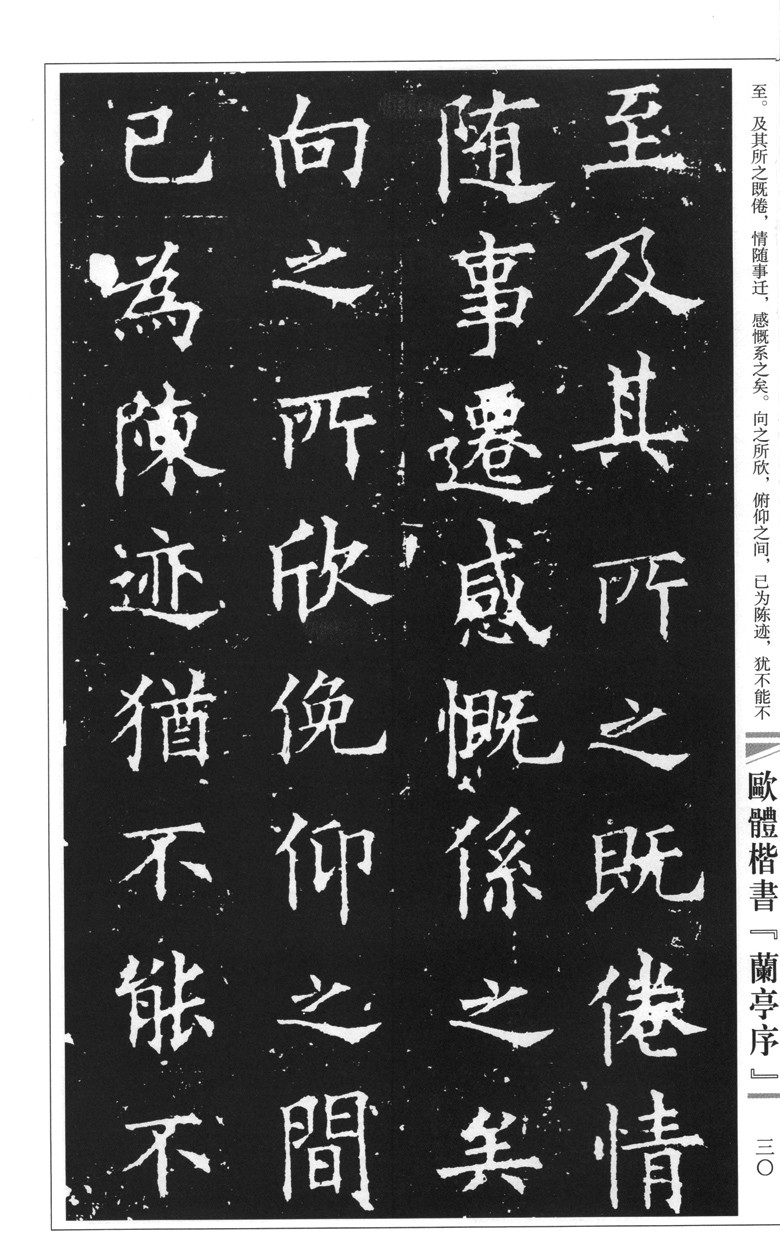 至及其所之既倦情
随事遷感慨係之矣
向之所欣俛仰之間
已為陳迹猶不能不
至。及其所之既倦，情随事迁，感慨系之矣。向之所欣，俯仰之间，已为陈迹，犹不能不
歐體楷書『蘭亭序』
三〇